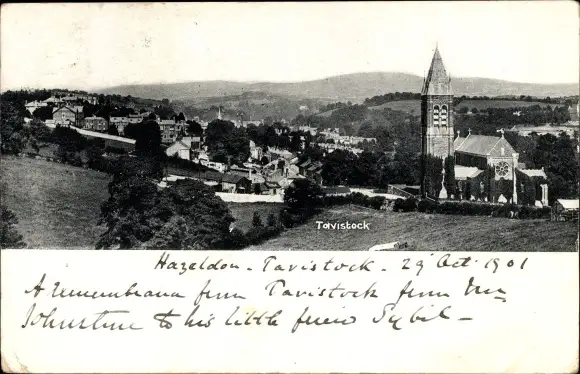 Tavistock
Hazeldon - Tavistock - 29 Oct. 1901
A remembrance from Tavistock from Mr
Johnstone to his little friend Sybil -